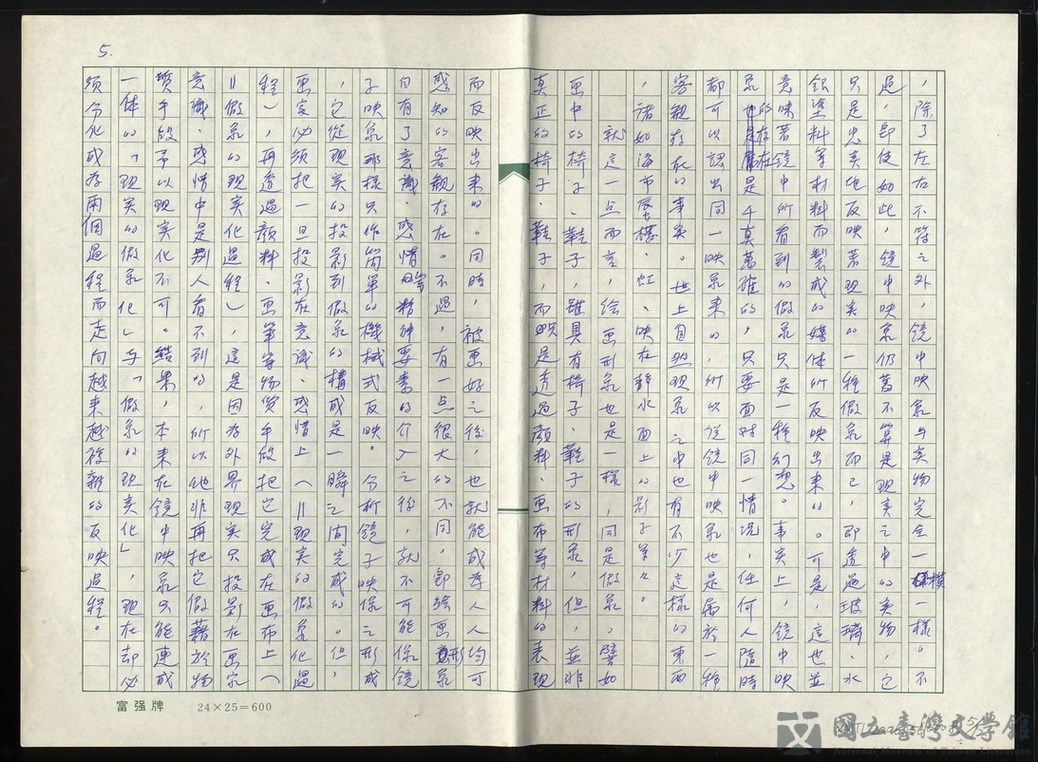 5.
，除了左右不符之外，鏡中映象与实物完全一模一樣。不
過，即使如此，鏡中映象仍舊不算是現实之中的实物，它
只是忠实地反映着現实的一種假象而已，即透過玻璃、水
銀塗料等材料而製成的媒体所反映出来的。可是，這也並
意味著鏡中所看到的假象只是一種幻想。事实上，鏡中映
象的存在是千真萬確的，只要面对同一情况，任何人隨時
都可以認出同一映象来的。所以從鏡中映象也是屬於一種
客觀存在的事实。世上自然現象之中也有不少這樣的東西
，諸如海市蜃樓、虹、映在靜水面上的影子等。
就這一点而言，绘画形象也是一樣，同是假象。譬如
画中的椅子、鞋子，雖具有椅子、鞋子的形象，但，並非
真正的椅子、鞋子，而是透過顏料、画布等材料的表現
而反映出来的。同時，被画好之後，也就能成為人人均可
感知的客觀存在。不過，有一点很大的不同，即绘画形象
因有了意識、感情等精神要素的介入之後，就不可能像鏡
子映象那樣只作简單的機械式反映。分析鏡子映像之形成
，它從現实的投影到假象的構成是一瞬之间完成的。但，
画家必須把一旦投影在意識、感情上（＝現实的假象化過
程），再透過顏料、画筆等物质手段把它完成在画布上（
＝假象的現实化過程），這是因為外界現实只投影在画家
意識、感情中是别人看不到的，所以他非再把它假藉於物
質手段予以現实化不可。結果，本来在鏡中映象只能連成
一体的「現实的假象化」与「假象的現实化」，現在却必
須分化成為兩個過程而走向越来越複雜的反映過程。
富强牌 24×25＝600
國立臺灣文學館
National Museum of Taiwan Literature